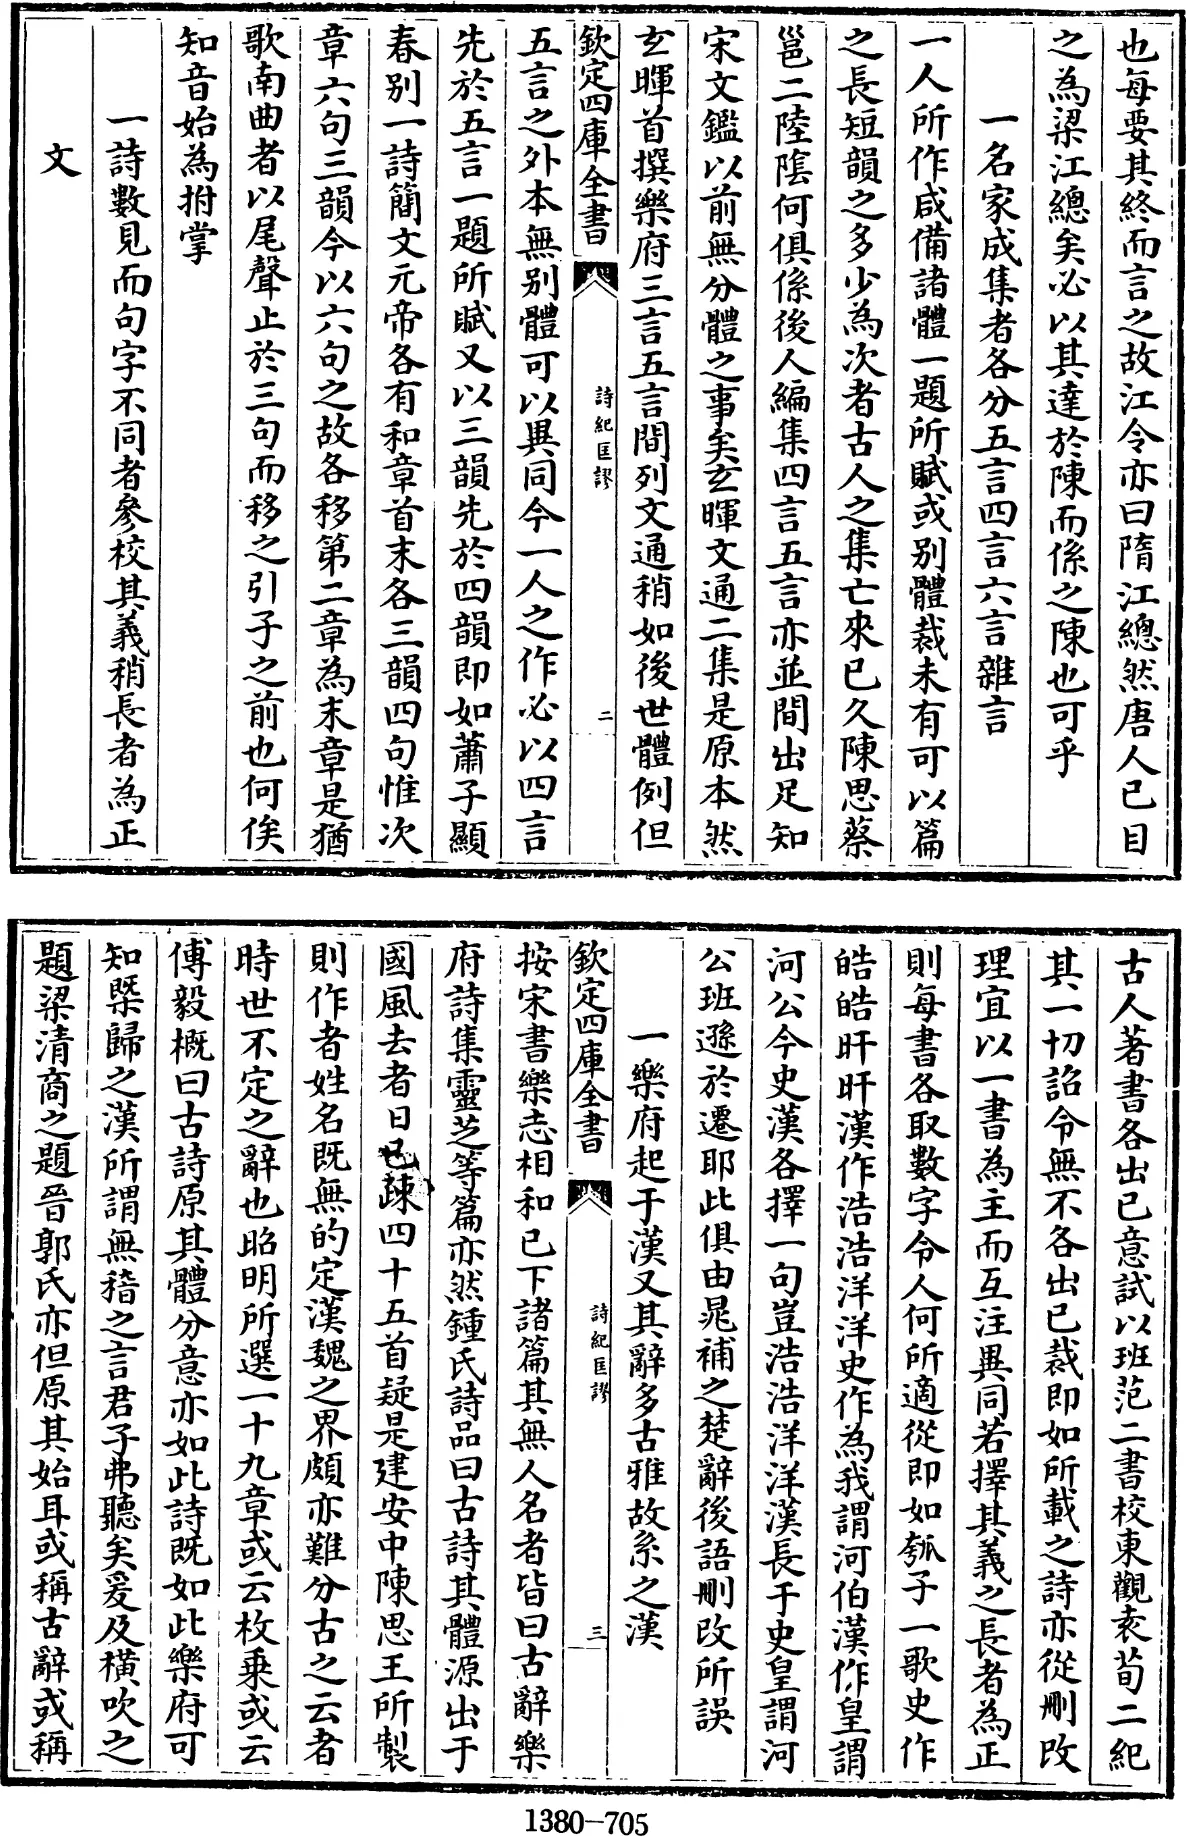 也每要其終而言之故江令亦曰隋江總然唐人已目
之為梁江總矣必以其達於陳而係之陳也可乎
一名家成集者各分五言四言六言雜言
一人所作咸備諸體一題所賦或别體裁未有可以篇
之長短韻之多少為次者古人之集亡來已久陳思蔡
邕二陸隂何俱係後人編集四言五言亦並間出足知
宋文鑑以前無分體之事矣玄暉文通二集是原本然
玄暉首撰樂府三言五言間列文通稍如後世體例但
欽定四庫全書
詩紀匡謬
二
五言之外本無别體可以異同今一人之作必以四言
先於五言一題所賦又以三韻先於四韻即如蕭子顯
春别一詩簡文元帝各有和章首末各三韻四句惟次
章六句三韻今以六句之故各移第二章為末章是猶
歌南曲者以尾聲止於三句而移之引子之前也何俟
知音始為拊掌
一詩數見而句字不同者參校其義稍長者為正
文
古人著書各出已意試以班范二書校東觀袁荀二紀
其一切詔令無不各出已裁即如所載之詩亦從刪改
理宜以一書為主而互注異同若擇其義之長者為正
則每書各取數字令人何所適從即如瓠子一歌史作
皓皓旰旰漢作浩浩洋洋史作為我謂河伯漢作皇謂
河公今史漢各擇一句豈浩浩洋洋漢長于史皇謂河
公班遜於遷耶此俱由晁補之楚辭後語刪改所誤
一樂府起于漢又其辭多古雅故系之漢
欽定四庫全書
詩紀匡謬
三
按宋書樂志相和已下諸篇其無人名者皆曰古辭樂
府詩集靈芝等篇亦然鍾氏詩品曰古詩其體源出于
國風去者日已疎四十五首疑是建安中陳思王所製
則作者姓名既無的定漢魏之界頗亦難分古之云者
時世不定之辭也昭明所選一十九章或云枚乗或云
傅毅概曰古詩原其體分意亦如此詩既如此樂府可
知槩歸之漢所謂無稽之言君子弗聽矣爰及横吹之
題梁清商之題晉郭氏亦但原其始耳或稱古辭或稱
1380-705